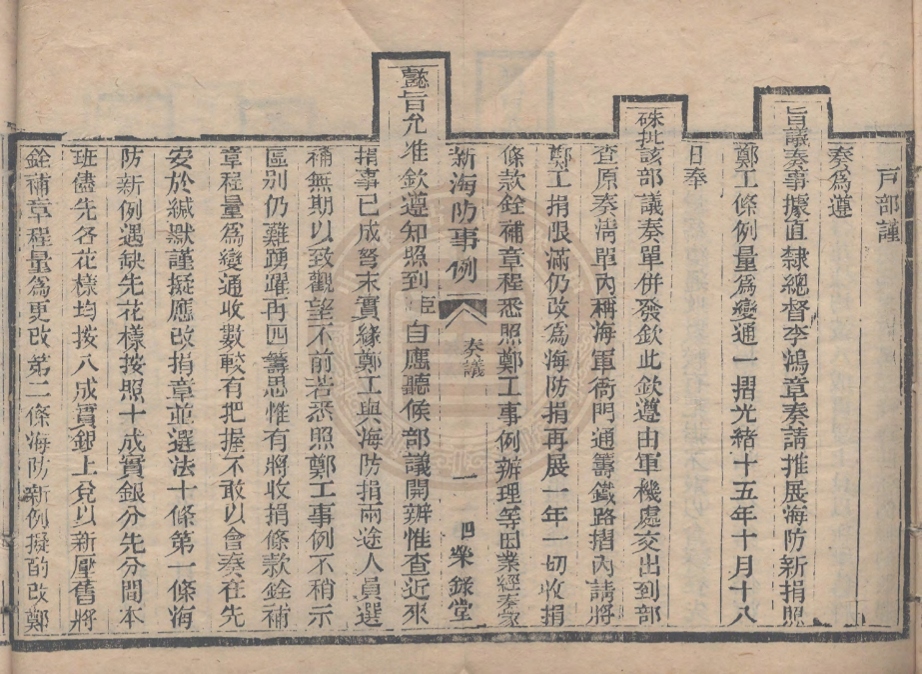 戶部謹
奏爲遵
旨議奏事據直隸總督李鴻章奏請推展海防新捐照
鄭工條例量爲變通一摺光緒十五年十月十八
日奉
硃批該部議奏單併發欽此欽遵由軍機處交出到部
查原奏淸單內稱海軍衙門通籌鐵路摺內請將
鄭工捐限滿仍改爲海防捐再展一年一切收捐
條款銓補章程悉照鄭工事例辦理等因業經奏蒙
新海防事例 奏議 一 四 榮錄堂
懿旨允准欽遵知照到臣自應聽候部議開辦惟查近來
捐事已成弩末實緣鄭工與海防捐兩途人員選
補無期以致觀望不前若悉照鄭工事例不稍示
區別仍難踴躍再四籌思惟有將收捐條款銓補
章程量爲變通收數較有把握不敢以會奏在先
安於緘默謹擬應改捐章並選法十條第一條海
防新例遇缺先花樣按照十成實銀分先分間本
班儘先各花樣均按八成實銀上兌以新壓舊將
銓補章程量爲更改第二條海防新例擬酌改鄭